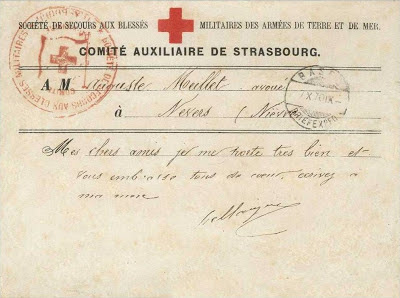 SOCIÉTÉ DE SECOURS AUX BLESSÉS MILITAIRES DES ARMÉES DE TERRE ET DE MER.
COMITÉ AUXILIAIRE DE STRASBOURG.
A M Auguste Meullet avoué
à Nevers (Nièvre
BASEL
BRIEFEXPED
Mes chers amis je me porte très bien et
vous embrasse tous de cœur, écrivez à
ma mère